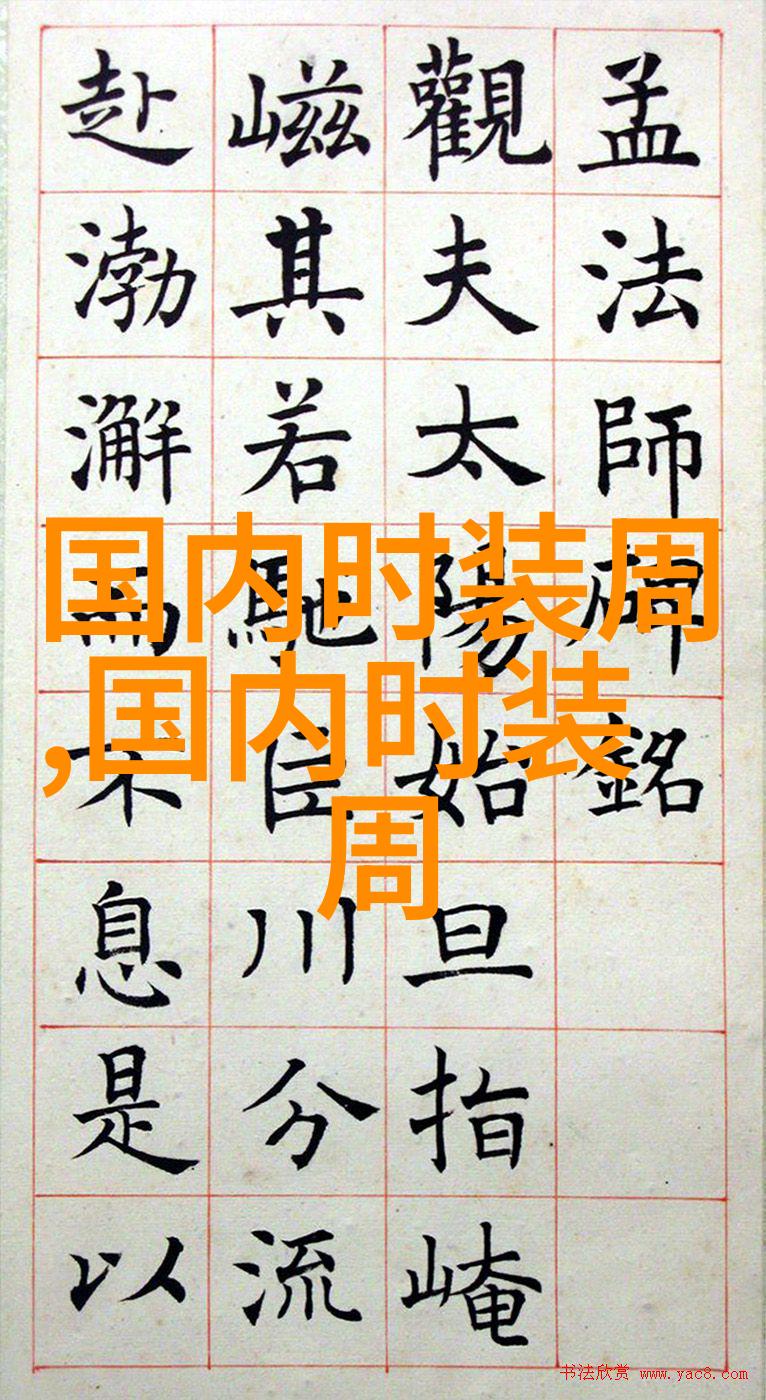 孟法師碑銘
觀夫太陽始旦指崦
嵫其若馳臣川分流
赴渤澥而不息是以
国内时装周
,国内时装
周
书法欣赏 www.yac8.com